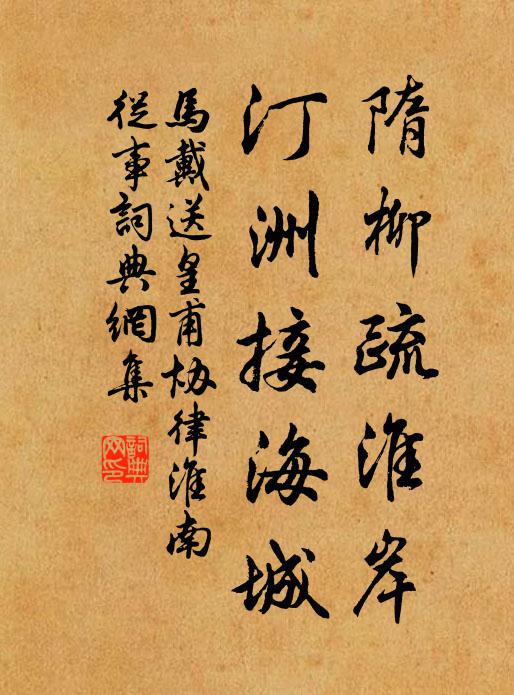 隋柳疏淮岸
汀洲接海城
馬戴送皇甫協律淮南
從事詞典網集
詞典網印